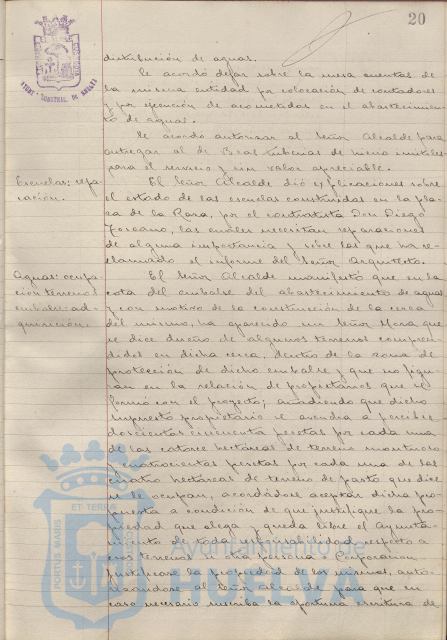 20
distribución de aguas.
Se acordó dejar sobre la mesa cuentas de
la misma entidad por colocación de contadores
y por ejecución de acometidas en el abastecimien-
to de aguas.
Se acordó autorizar al Señor Alcalde para
entregar al de Beas tuberías de hierro inútiles
para el servicio y sin valor apreciable.
Escuelas: repa-
ración.
El Señor Alcalde dió explicaciones sobre
el estado de las escuelas construidas en la pla-
za de la Rana, por el contratista Don Diego
Toscano, las cuales necesitan reparaciones
de alguna importancia y sobre las que ha re-
clamado el informe del Señor Arquitecto.
Aguas: ocupa-
ción terrenos
embalse: ad-
quisición.
El Señor Alcalde manifestó que en la
cota del embalse del abastecimiento de aguas
y con motivo de la construcción de la cerca
del mismo, ha aparecido un Señor Mora que
se dice dueño de algunos terrenos compren-
didos en dicha cerca, dentro de la zona de
protección de dicho embalse y que no figu-
ran en la relación de propietarios que se
formó con el proyecto; añadiendo que dicho
supuesto propietario se avendría a percibir
doscientas cincuenta pesetas por cada una
de las catorce hectáreas de terreno montuoso
y cuatrocientas pesetas por cada una de las
cuatro hectáreas de terreno de pasto que dice
se le ocupan, acordándose aceptar dicha pro-
puesta a condición de que justifique la pro-
piedad que alega y queda libre el Ayunta-
miento de toda responsabilidad respecto a
esos terrenos si otra persona o Corporación
justificase la propiedad de los mismos, auto-
rizándose al Señor Alcalde para que en
caso necesario suscriba la oportuna escritura de
Ayuntamiento de
HUELVA
PORTUS MARIS
ET TERRÆ